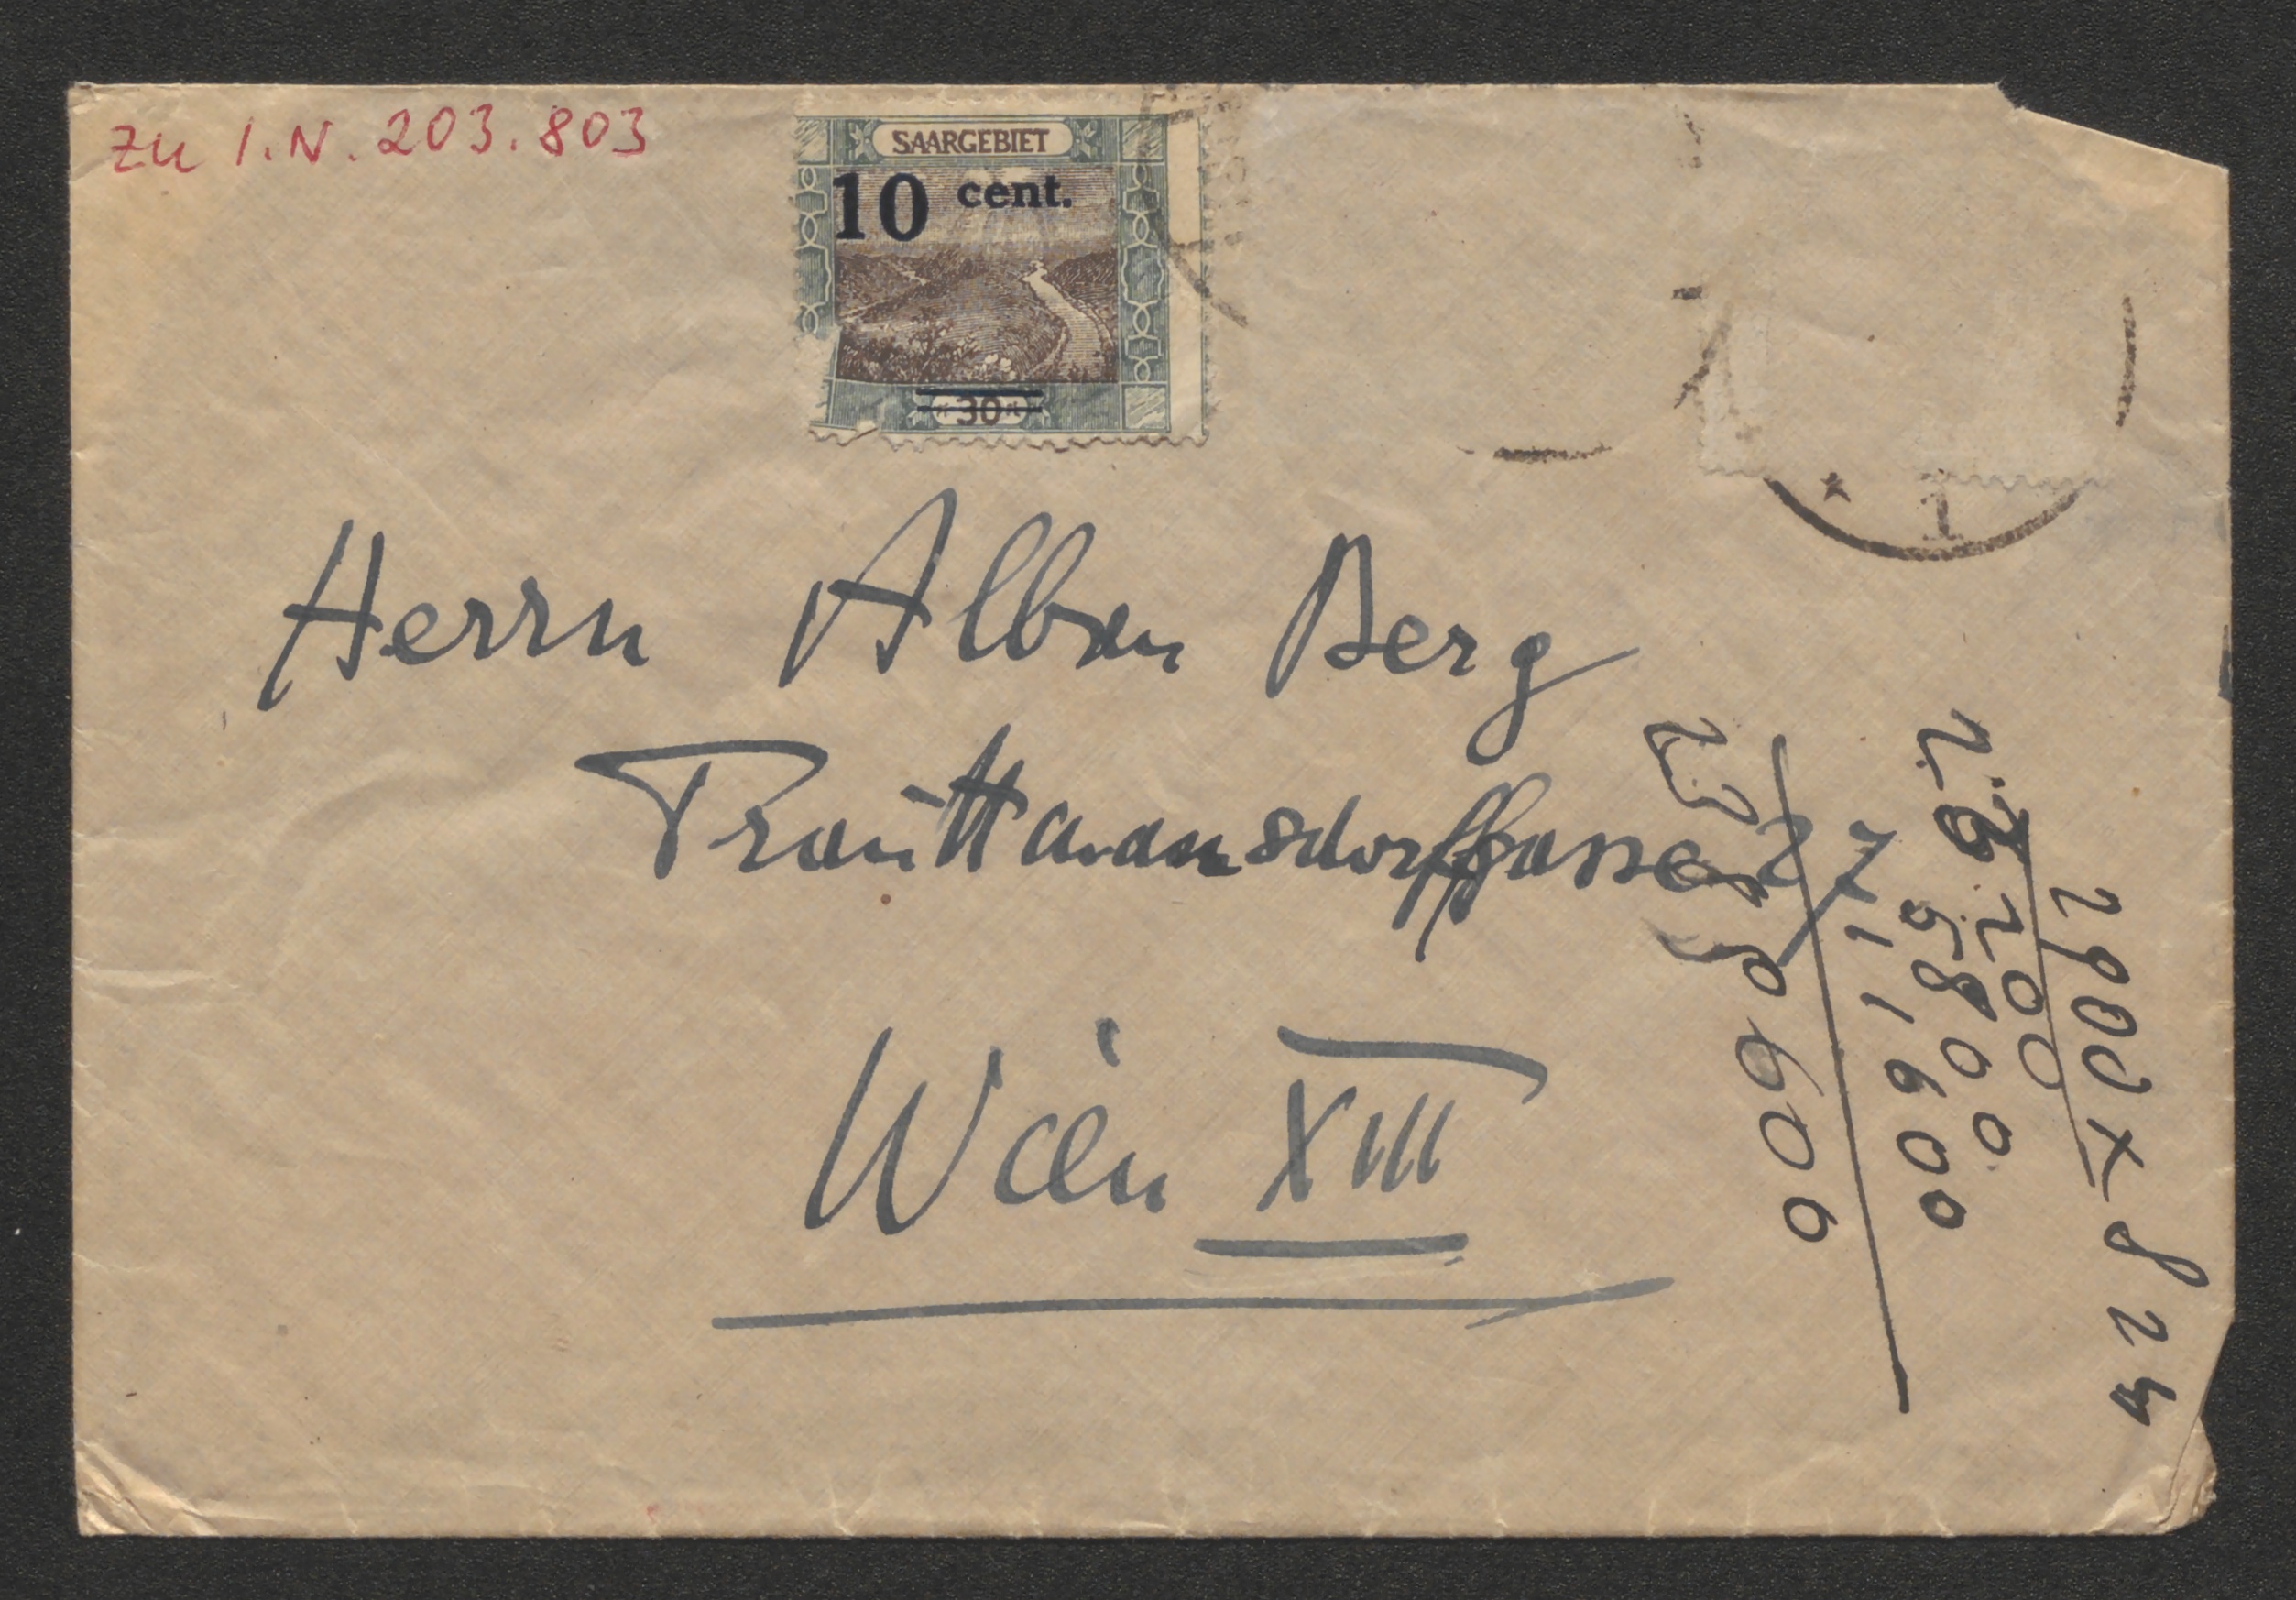 zu I.N. 203.803
SAARGEBIET
10 cent.
30
1
Herrn Alban Berg
Trauttmansdorffgasse 27
Wien XIII
2900 x 824
23200
5800
11600
2389600